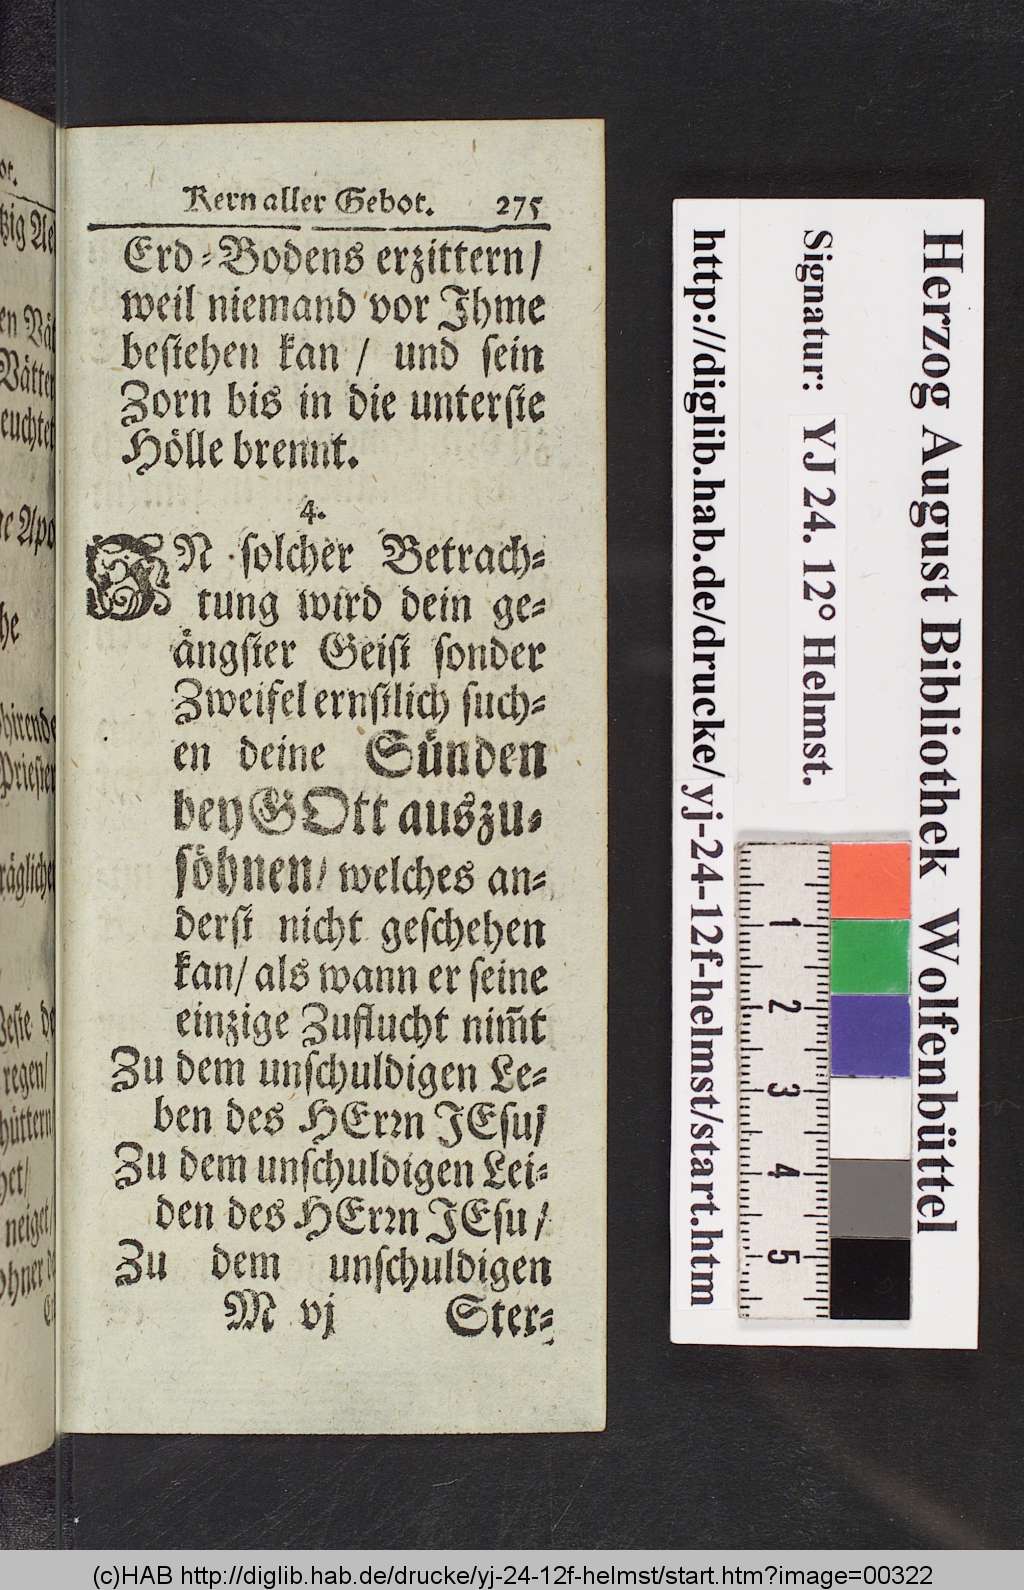 Kern aller Gebot. 275
Erd-Bodens erzittern/
weil niemand vor Ihme
bestehen kan / und sein
Zorn bis in die unterste
Hölle brennt.
4.
IN solcher Betrach-
tung wird dein ge-
ängster Geist sonder
Zweifel ernstlich such-
en deine Sünden
bey GOtt auszu-
söhnen/ welches an-
derst nicht geschehen
kan/ als wann er seine
einzige Zuflucht nim̃t
Zu dem unschuldigen Le-
ben des HErꝛn JEsu/
Zu dem unschuldigen Lei-
den des HErꝛn JEsu /
Zu dem unschuldigen
M vj Ster-
Herzog August Bibliothek Wolfenbüttel
Signatur: YJ 24. 12° Helmst.
http://diglib.hab.de/drucke/yj-24-12f-helmst/start.htm
1
2
3
4
5
(c)HAB http://diglib.hab.de/drucke/yj-24-12f-helmst/start.htm?image=00322